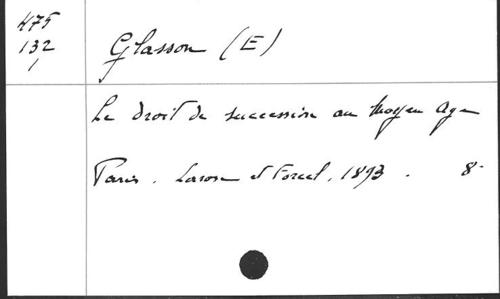 475
132
1
Glasson (E)
Le droit de succession au Moyen Age
Paris. Larose et Forcel, 1893. 8°